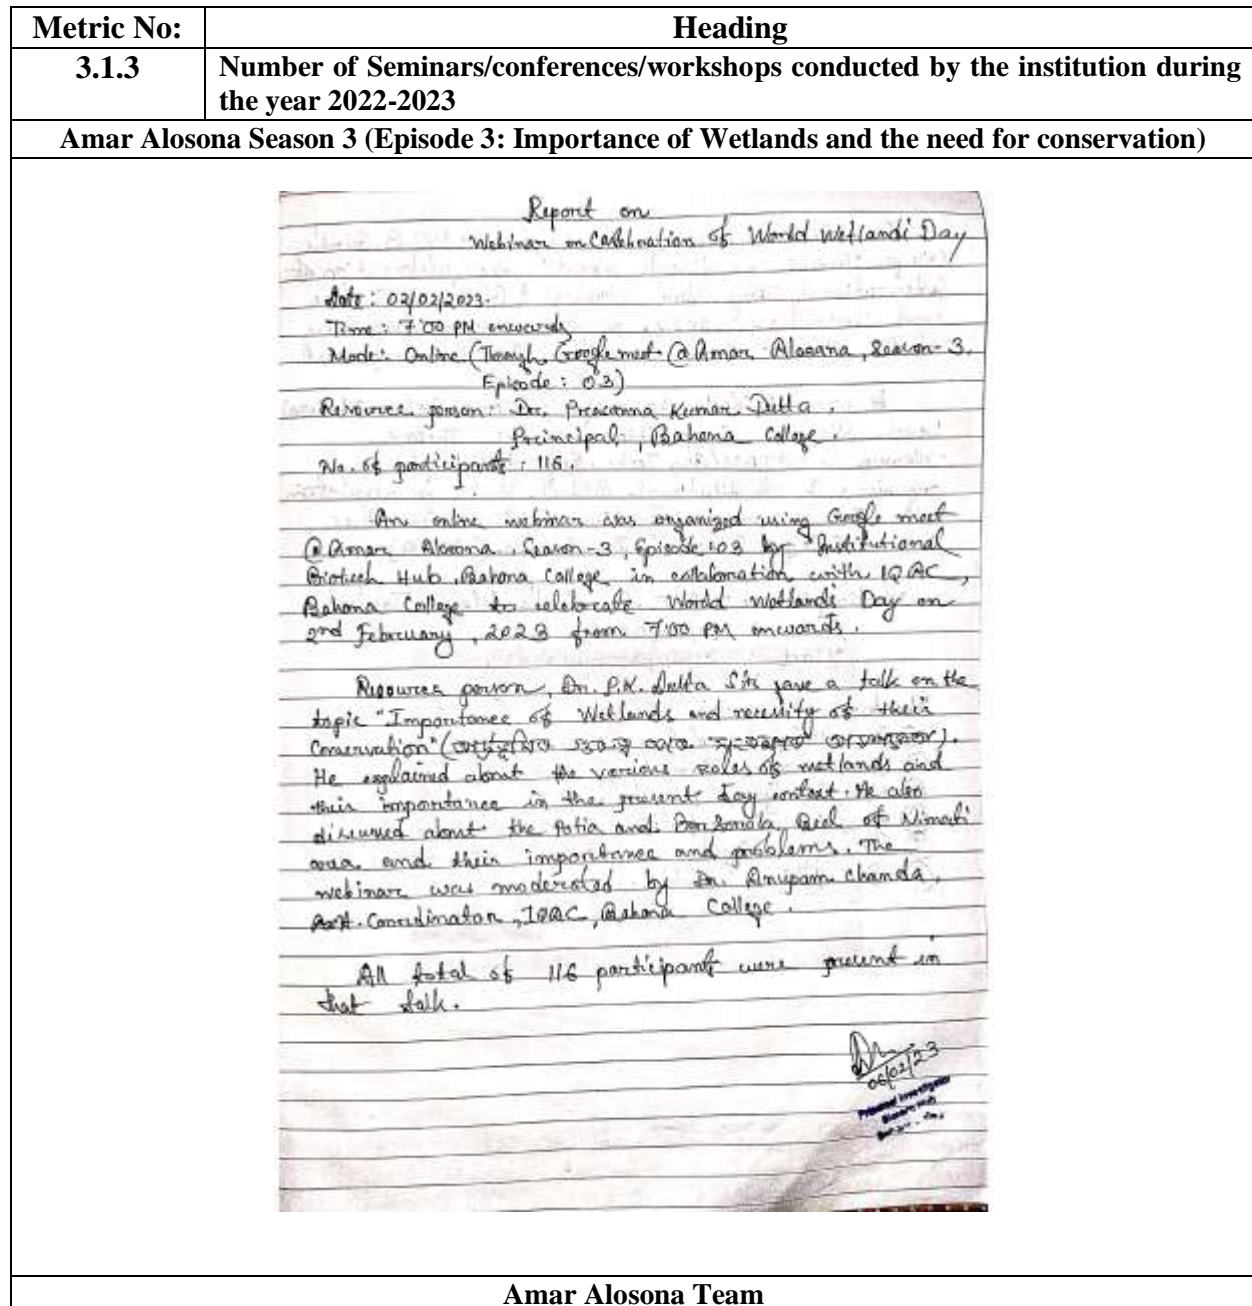 Metric No:
Heading
3.1.3
Number of Seminars/conferences/workshops conducted by the institution during
the year 2022-2023
Amar Alosona Season 3 (Episode 3: Importance of Wetlands and the need for conservation)
Report on
Webinar on Celebration of World Wetlandi Day
Date: 02/02/2023.
Time: 7:00 PM onwards
Mode: Online (Through Google meet @ Amar Alosona, Season-3,
Episode: 03)
Resource person: Dr. Prasanna Kumar Dutta,
Principal, Bahona College.
No. of participants: 116.
An online webinar was organized using Google meet
@ Amar Alosona, Season-3, Episode:03 by Institutional
Biotech Hub, Bahona College in collaboration with IQAC,
Bahona College to celebrate World Wetlands Day on
2nd February, 2023 from 7:00 PM onwards.
Resource person, Dr. P.K. Dutta Sir gave a talk on the
topic "Importance of Wetlands and necessity of their
Conservation" (
He explained about the various roles of wetlands and
their importance in the present day context. He also
discussed about the Potia and Beel of Nimati
area and their importance and problems. The
webinar was moderated by Dr. Anupam Chanda,
Asst. Coordinator, IQAC, Bahona College.
All total of 116 participants were present in
that talk.
06/02/23
Principal Investigator
Amar Alosona Team